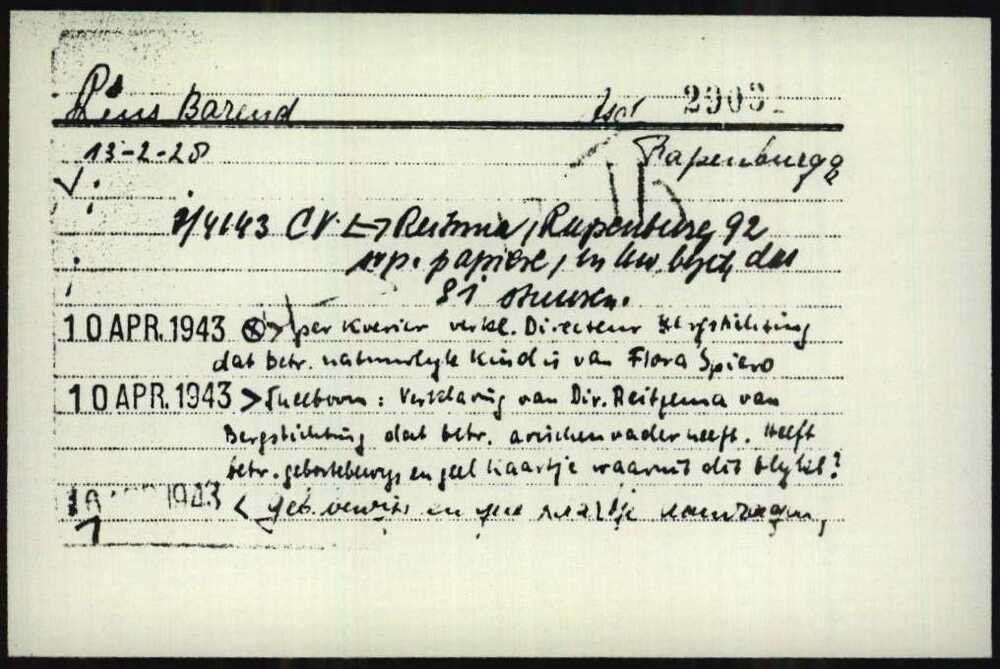 Rens Barend 2908
13-2-28 Rapenburg 92
9/4/43 CV Reitsma, Rapenburg 92
papiere, in
81 sturen.
10 APR. 1943 per Koerier verkl. Directeur Bergstichting
dat betr. natuurlyk Kind is van Flora Spiero
10 APR. 1943 > : Verklaring van Dir. Reitzema van
Bergstichting dat betr. arischen vader heeft. Heeft
betr. geboortebewys en geel Kaartje waaruit dit blykt?
1943 < geb. bewijs en geel kaartje aanvragen,
1